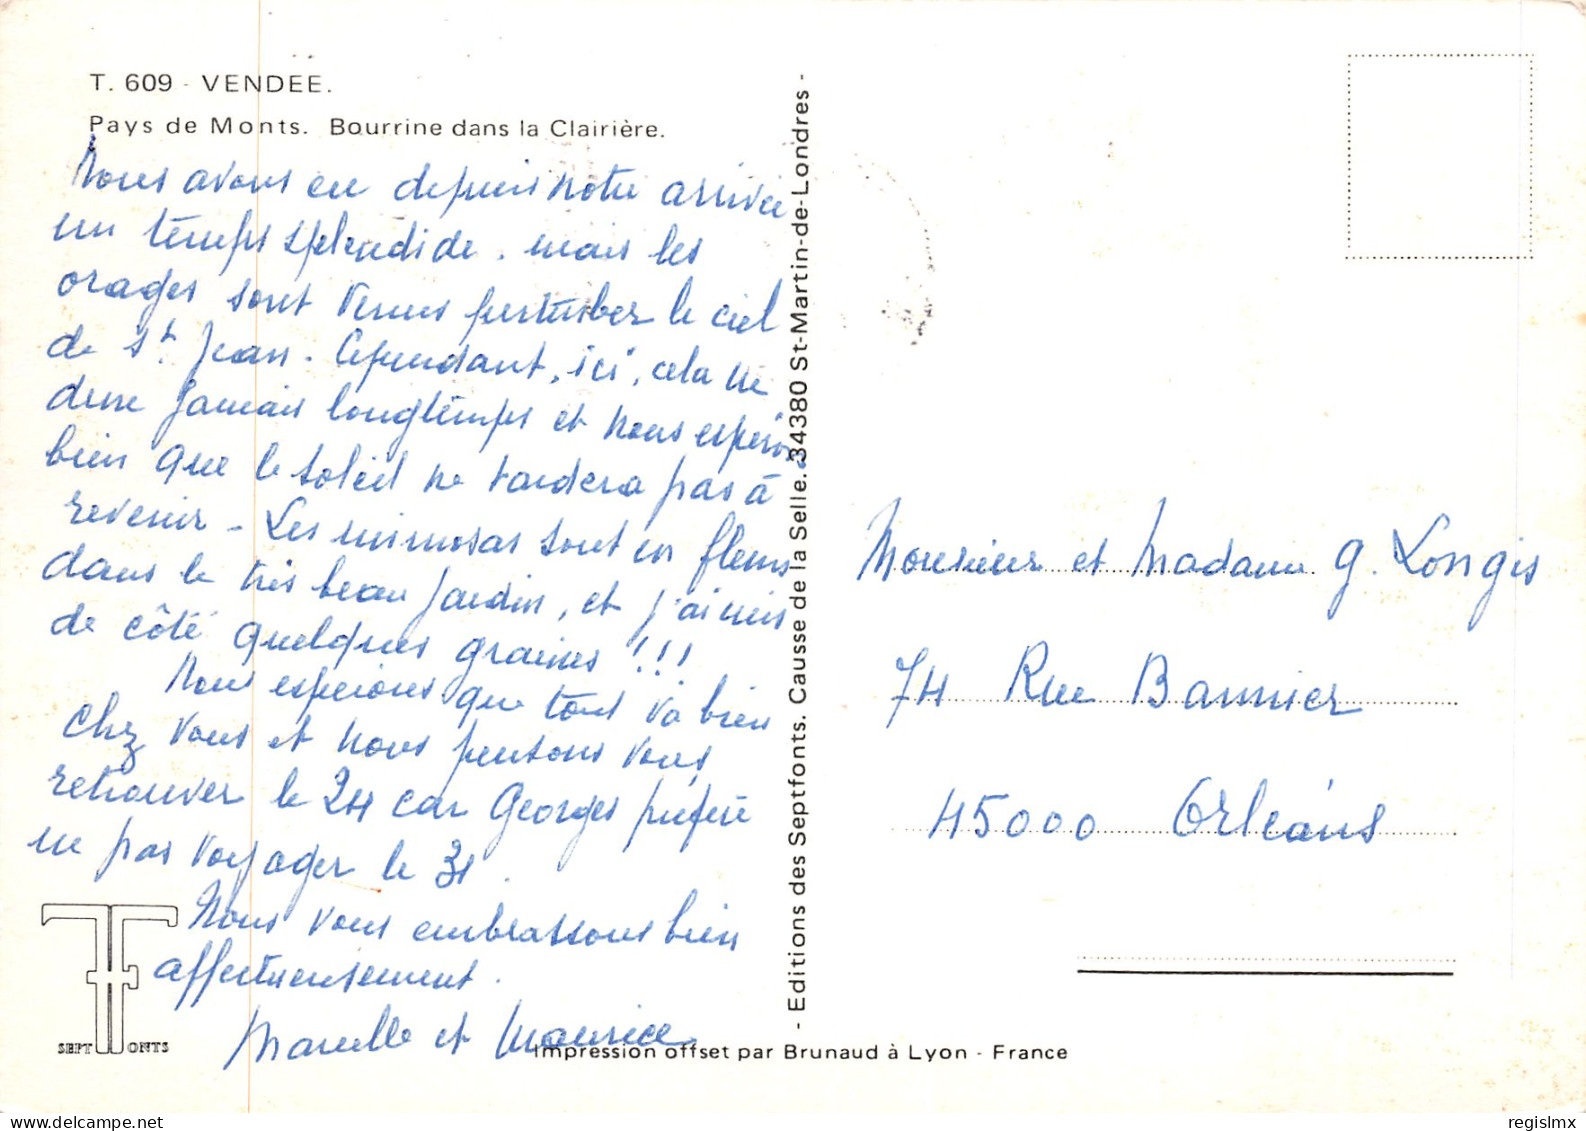 T. 609 - VENDEE.
Pays de Monts. Bourrine dans la Clairière.
Nous avons eu depuis notre arrivée
un temps splendide. mais les
orages sont venus perturber le ciel
de St Jean. Cependant, ici, cela ne
dure jamais longtemps et nous espérons
bien que le soleil ne tardera pas à
revenir - Les mimosas sont en fleurs
dans le très beau jardin, et j'ai mis
de côté quelques graines !!!
Nous espérons que tout va bien
chez vous et nous pensons vous
retrouver le 24 car Georges préfère
ne pas voyager le 31.
Nous vous embrassons bien
affectueusement.
Marcelle et Maurice
SEPT FONTS
- Editions des Septfonts. Causse de la Selle. 34380 St-Martin-de-Londres -
Impression offset par Brunaud à Lyon - France
Monsieur et Madame G. Longis
74 Rue Bannier
45000 Orléans
regislmx